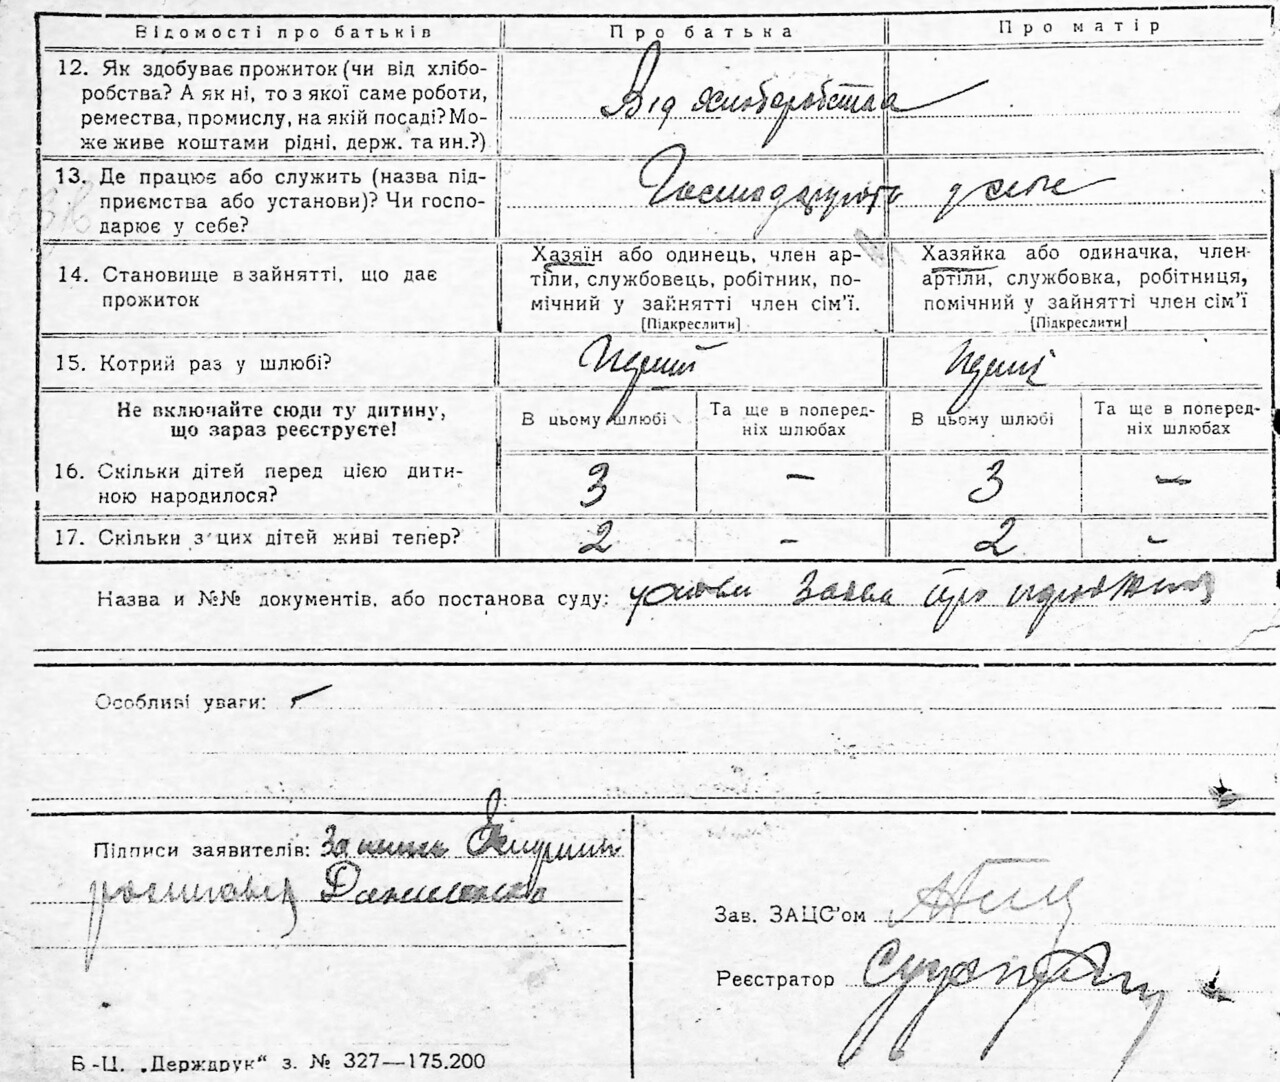 Відомості про батьків Про батька Про матір
12. Як здобуває прожиток (чи від хлібо-
робства? А як ні, то з якої саме роботи,
ремества, промислу, на якій посаді? Мо-
же живе коштами рідні, держ. та ин.?)
Від хліборобства
13. Де працює або служить (назва під-
приємства або установи)? Чи госпо-
дарює у себе?
Господарують у себе
14. Становище в зайнятті, що дає
прожиток
Хазяїн або одинець, член ар-
тіли, службовець, робітник, по-
мічний у зайнятті член сім'ї.
[Підкреслити]
Хазяйка або одиначка, член-
артіли, службовка, робітниця,
помічний у зайнятті член сім'ї
[Підкреслити]
15. Котрий раз у шлюбі? Перший Перші
Не включайте сюди ту дитину,
що зараз реєструєте!
В цьому шлюбі Та ще в поперед-
ніх шлюбах В цьому шлюбі Та ще в поперед-
ніх шлюбах
16. Скільки дітей перед цією дити-
ною народилося? 3 – 3 –
17. Скільки з цих дітей живі тепер? 2 - 2 -
Назва и №№ документів, або постанова суду: заява про
Особливі уваги: -
Підписи заявителів: За
розписавсь
Зав. ЗАЦС'ом
Реєстратор
Б-Ц. „Держдрук“ з. № 327—175.200